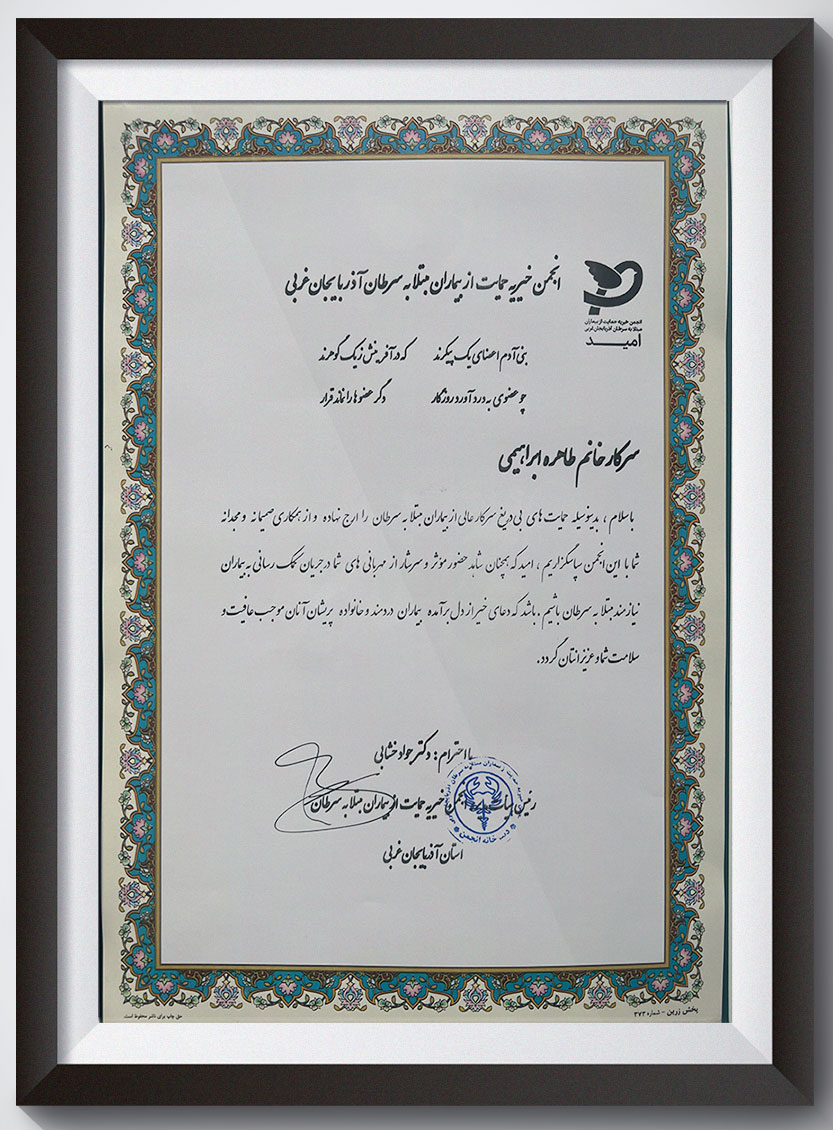 انجمن خیریه حمایت از بیماران مبتلا به سرطان آذربایجان غربی
انجمن خیریه حمایت از بیماران
مبتلا به سرطان آذربایجان غربی
امید
بنی آدم اعضای یک پیکرند که در آفرینش ز یک گوهرند
چو عضوی به درد آورد روزگار دگر عضوها را نماند قرار
سرکار خانم طاهره ابراهیمی
باسلام ، بدینوسیله حمایت های بی دریغ سرکار عالی از بیماران مبتلا به سرطان را ارج نهاده و از همکاری صمیمانه و مجدانه
شما با این انجمن سپاسگزاریم ، امید که همچنان شاهد حضور مؤثر و سرشار از مهربانی های شما در جریان کمک رسانی به بیماران
نیازمند مبتلا به سرطان باشیم . باشد که دعای خیر از دل برآمده بیماران دردمند و خانواده پریشان آنان موجب عافیت و
سلامت شما و عزیزانتان گردد.
با احترام : دکتر جواد خشابی
رئیس هیات انجمن خیریه حمایت از بیماران مبتلا به سرطان
استان آذربایجان غربی
دبیرخانه انجمن
پخش زرین - شماره ۳۷۳
حق چاپ برای ناشر محفوظ است.